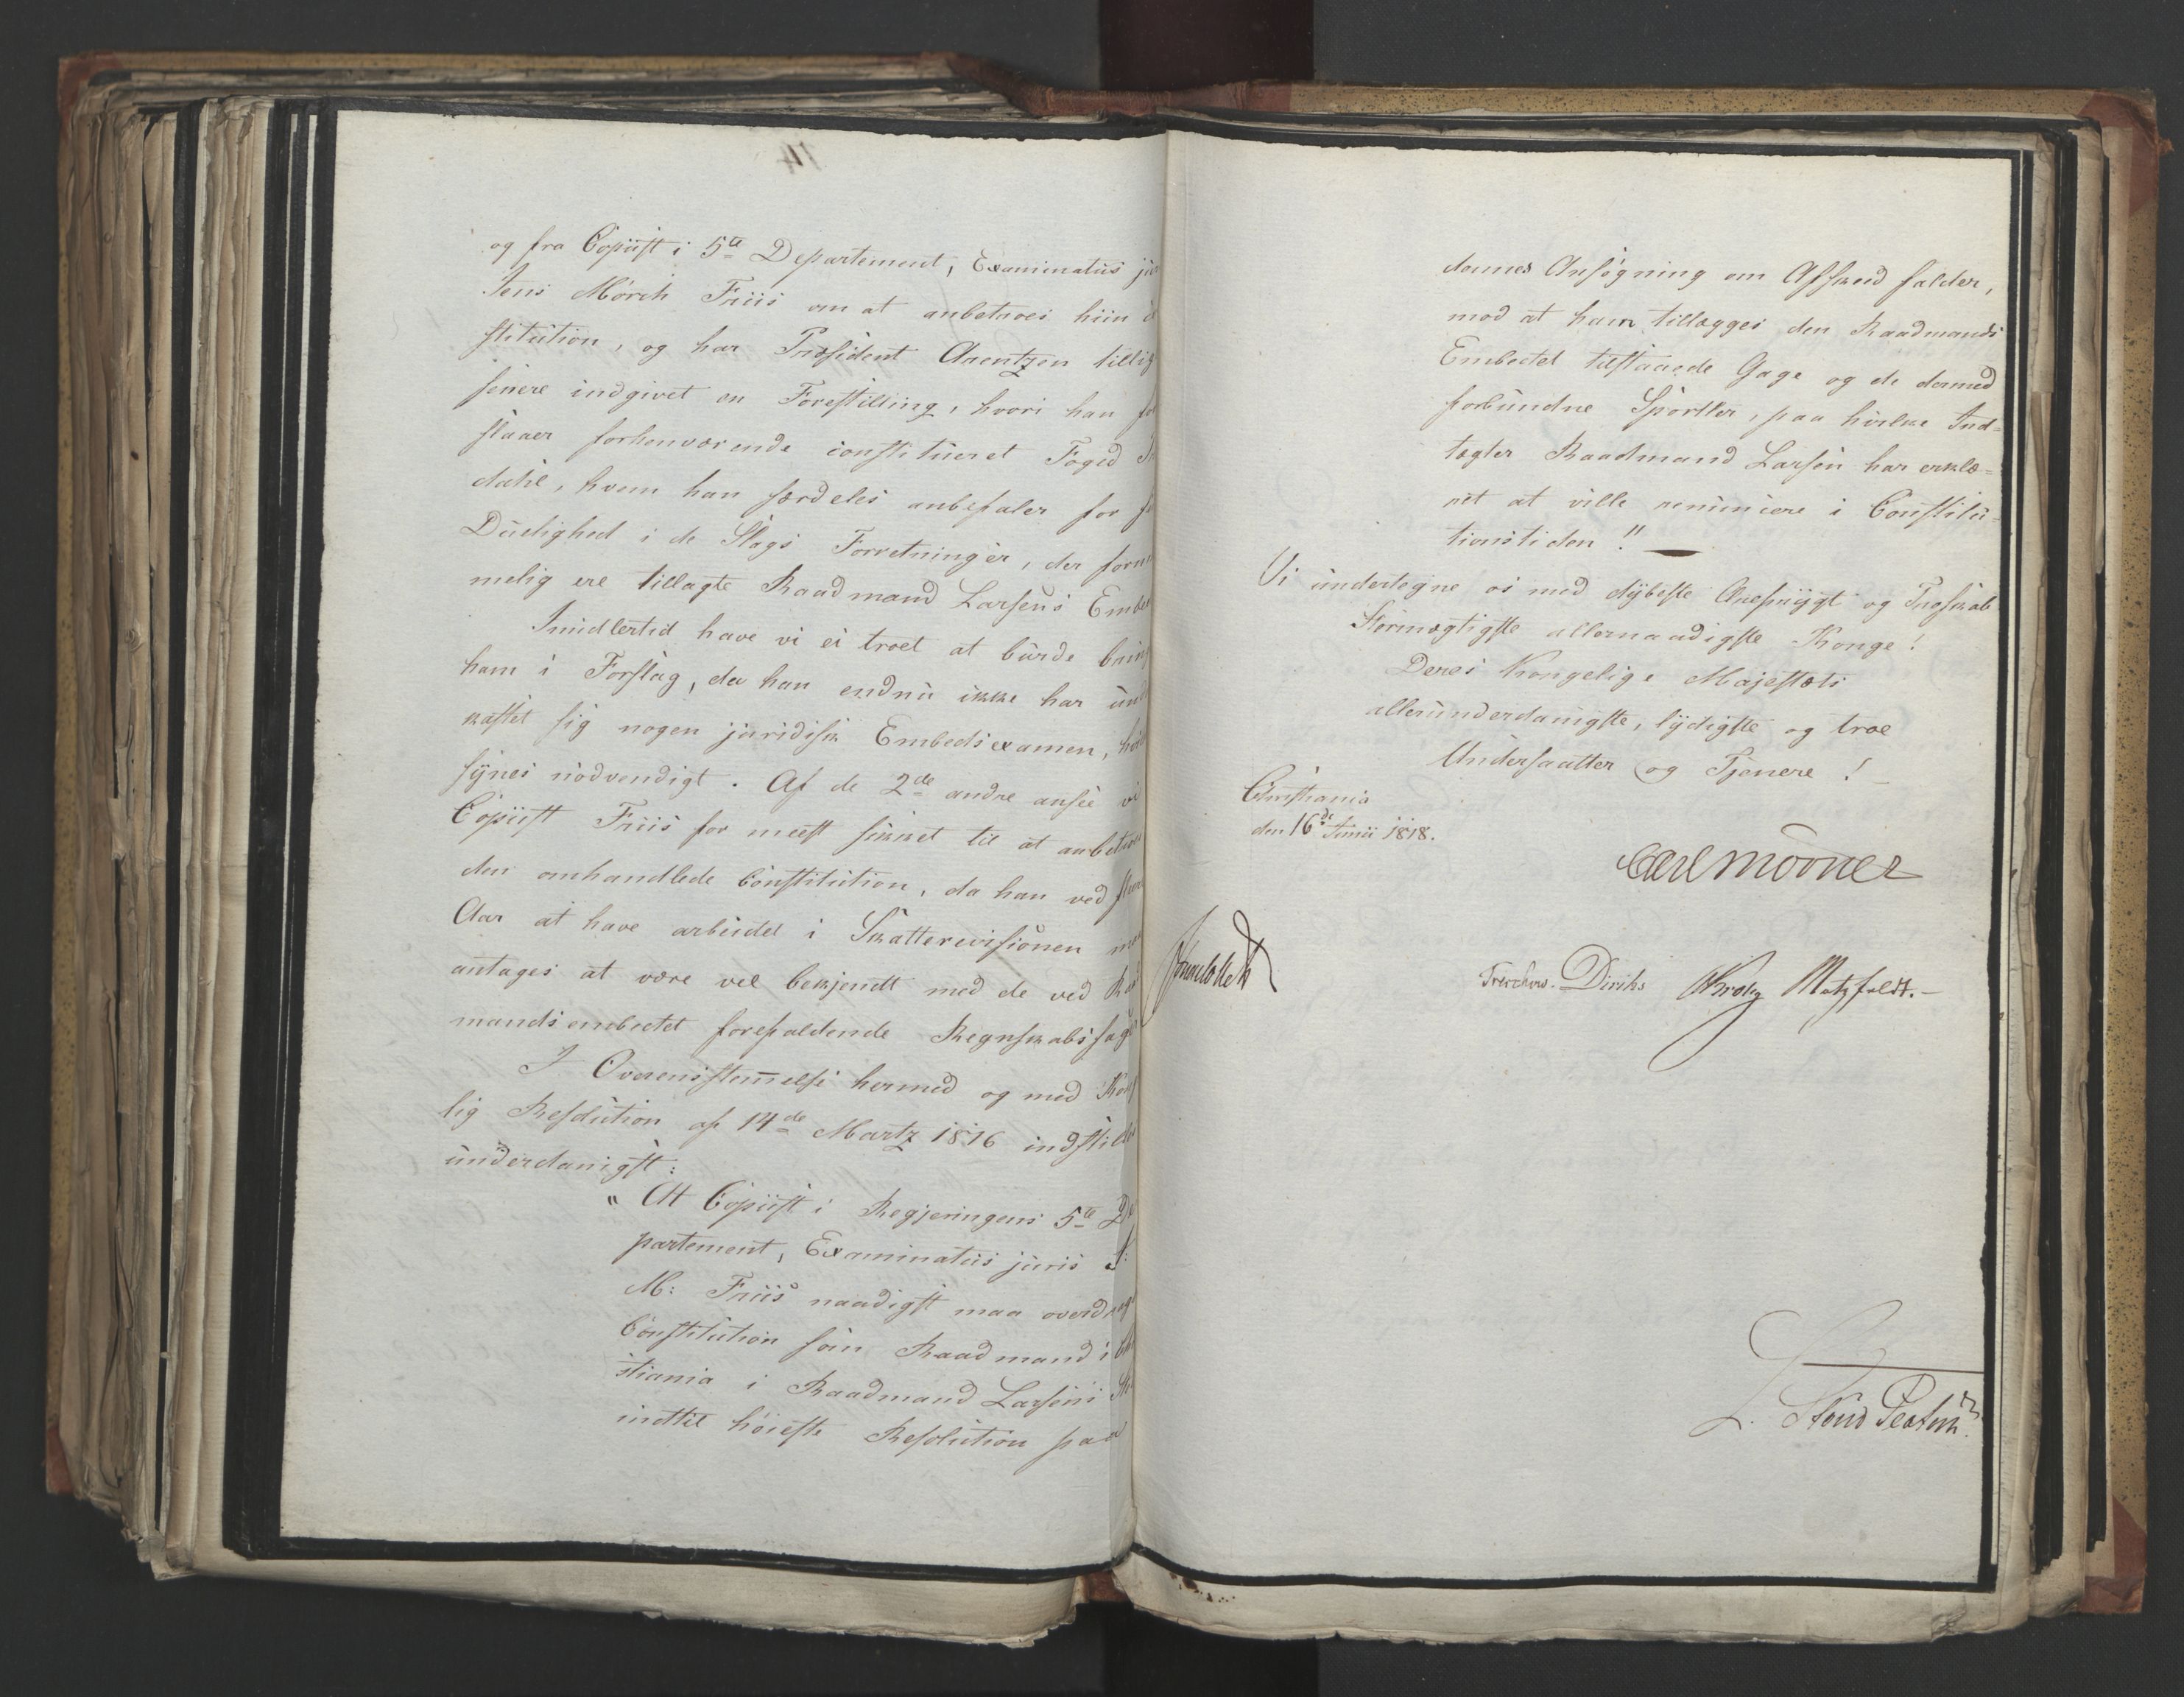 og fra Copiist i 5te Departement, Examinatus
Jens Mörch Friis om at anbetroes hiin
stitution, og har Præsident Arentzen tillig
senere indgivet en Forestilling, hvori han
slaaer forhenværende constitueret Foged
dahl, hvem han særdeles anbefaler for
Duelighed i de Slags Forretninger, der
melig ere tillagte Raadmand Larsens
Imidlertid have vi ei troet at burde
ham i Forslag, da han endnu ikke har
kastet sig nogen juridisk Embedsexamen,
synes nödvendigt. Af de 2de andre ansee vi
Copiist Friis for meest skikket til at
den omhandlede Constitution, da han ved
Aar at have arbeidet i Skatterevisionen
antages at være vel bekjendt med de ved
mandsembedet forefaldende Regnskabssag
I Overensstem̄else hermed og med
lig Resolution af 14de Martz 1816
underdanigst:
" At Copiist i Regjeringens 5te
partement, Examinatus juris
M: Friis naadigst maa
Constitution som Raadmand i
stiania i Raadmand Larsens
indtil höieste Resolution paa
dennes Ansögning om Afskeed falder,
mod at ham tillægges den Raadmands
Embedet tilstaaede Gage og de dermed
forbundne Sportler, paa hvilke Ind=
tægter Raadmand Larsen har erklæ=
ret at ville renunciere i Constitu=
tionstiden!"
Vi undertegne os med dybeste Ærefrygt og Troskab
Stormægtigste allernaadigste Konge!
Deres Kongelige Majestæts
allerunderdanigste, lydigste og troe
Undersaatter og Tjenere!
Christiania
den 16de Junii 1818.
Carl Mörner
Sommelthielm
Treschow. Diriks Krohg Motzfeldt.